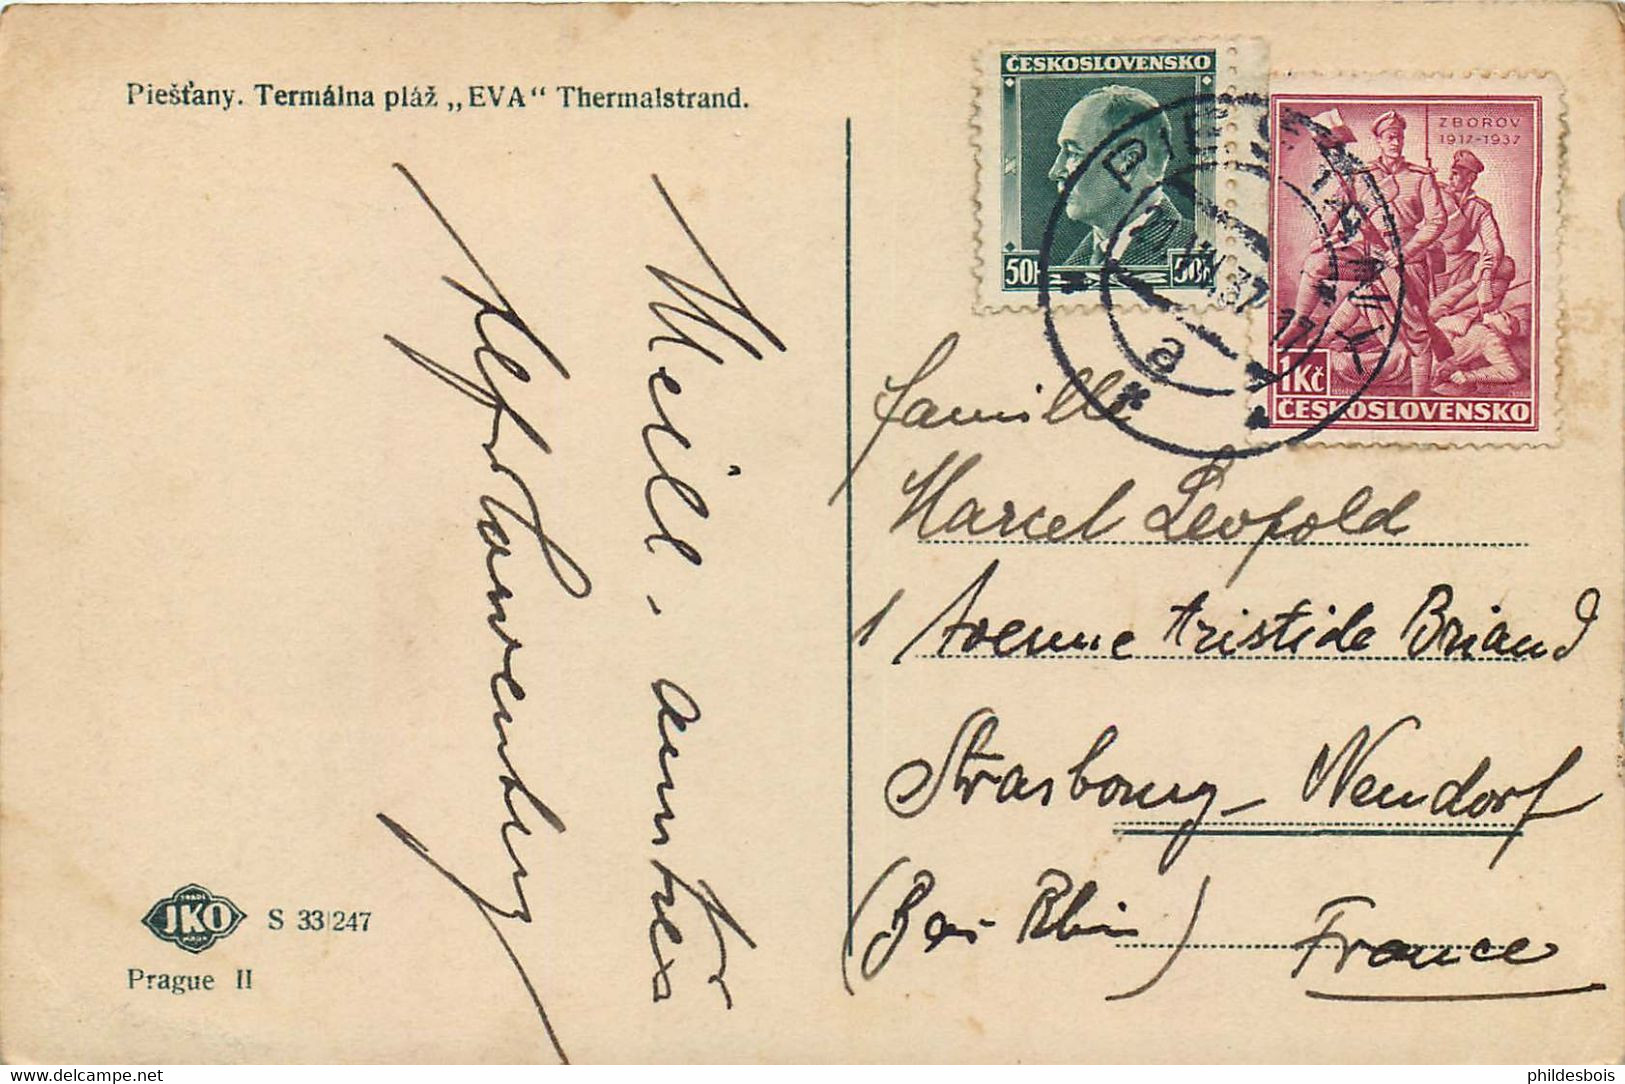 Piešťany. Termálna pláž „EVA" Thermalstrand.
ČESKOSLOVENSKO
50h
50h
ZBOROV
1917-1937
1Kč
ČESKOSLOVENSKO
PIEŠŤANY
37-17
a
Famille
Marcel Leopold
1 Avenue Aristide Briand
Strasbourg-Neudorf
(Bas Rhin)
France
Meill.
TRADE
JKO
MARK
S 33|247
Prague II
phildesbois